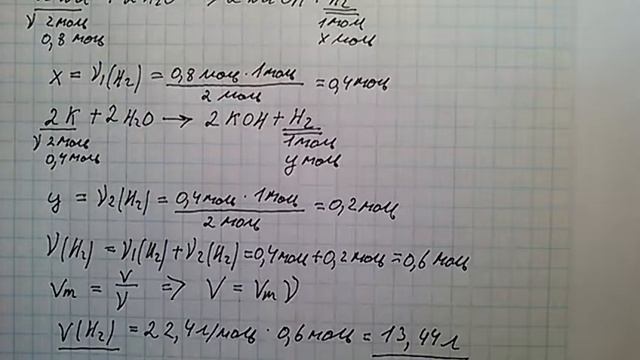 + 2H₂O → 2NaOH + H₂
ν 2моль 1моль
0,8 моль x моль
x = ν₁(H₂) = 0,8 моль · 1 моль / 2 моль = 0,4 моль
2K + 2H₂O → 2KOH + H₂
ν 2моль 1моль
0,4 моль y моль
y = ν₂(H₂) = 0,4 моль · 1 моль / 2 моль = 0,2 моль
ν(H₂) = ν₁(H₂) + ν₂(H₂) = 0,4 моль + 0,2 моль = 0,6 моль
Vm = V / ν => V = Vm ν
V(H₂) = 22,4 л/моль · 0,6 моль = 13,44 л